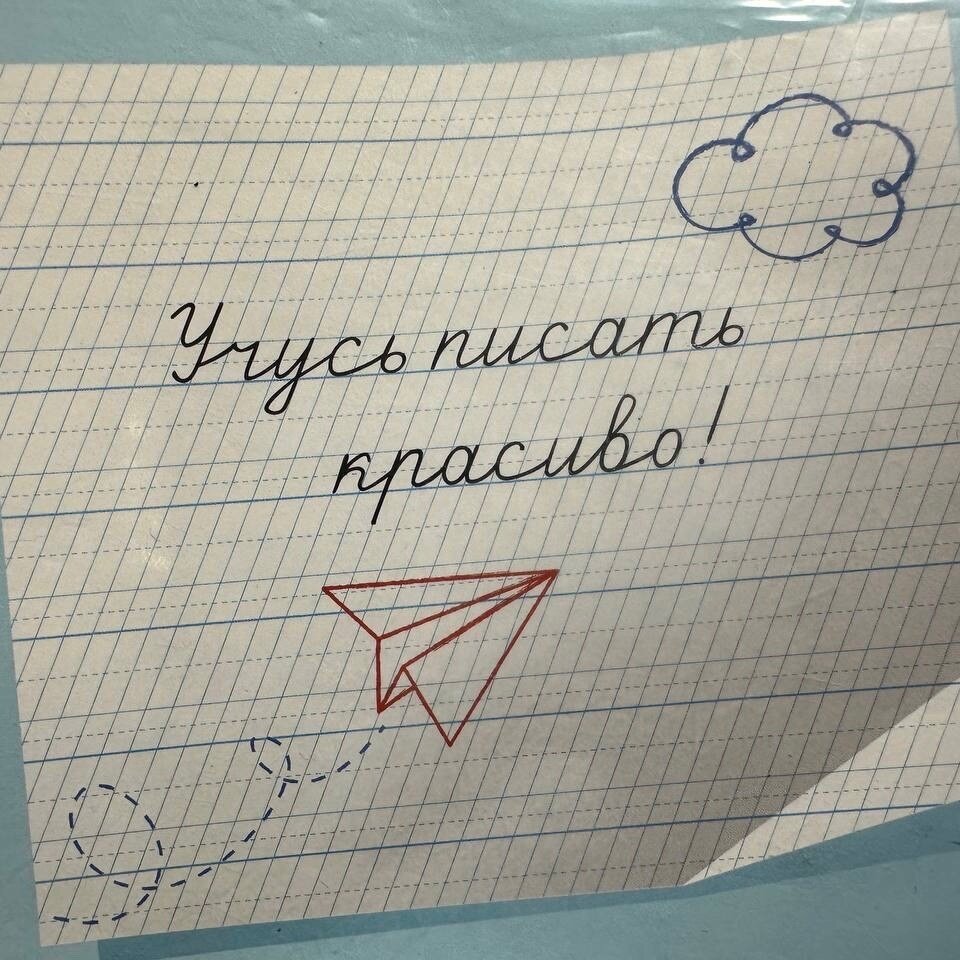 Учусь писать
красиво!